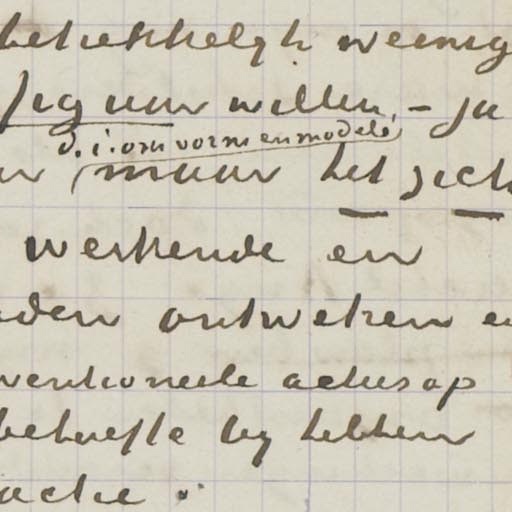 betrekkelyk weinig
figuur willen, – ja
d.i. om vorm en modelé
maar het zich
werkende en
den ontweken
ventioneele acties op
behoefte by hebben
actie.